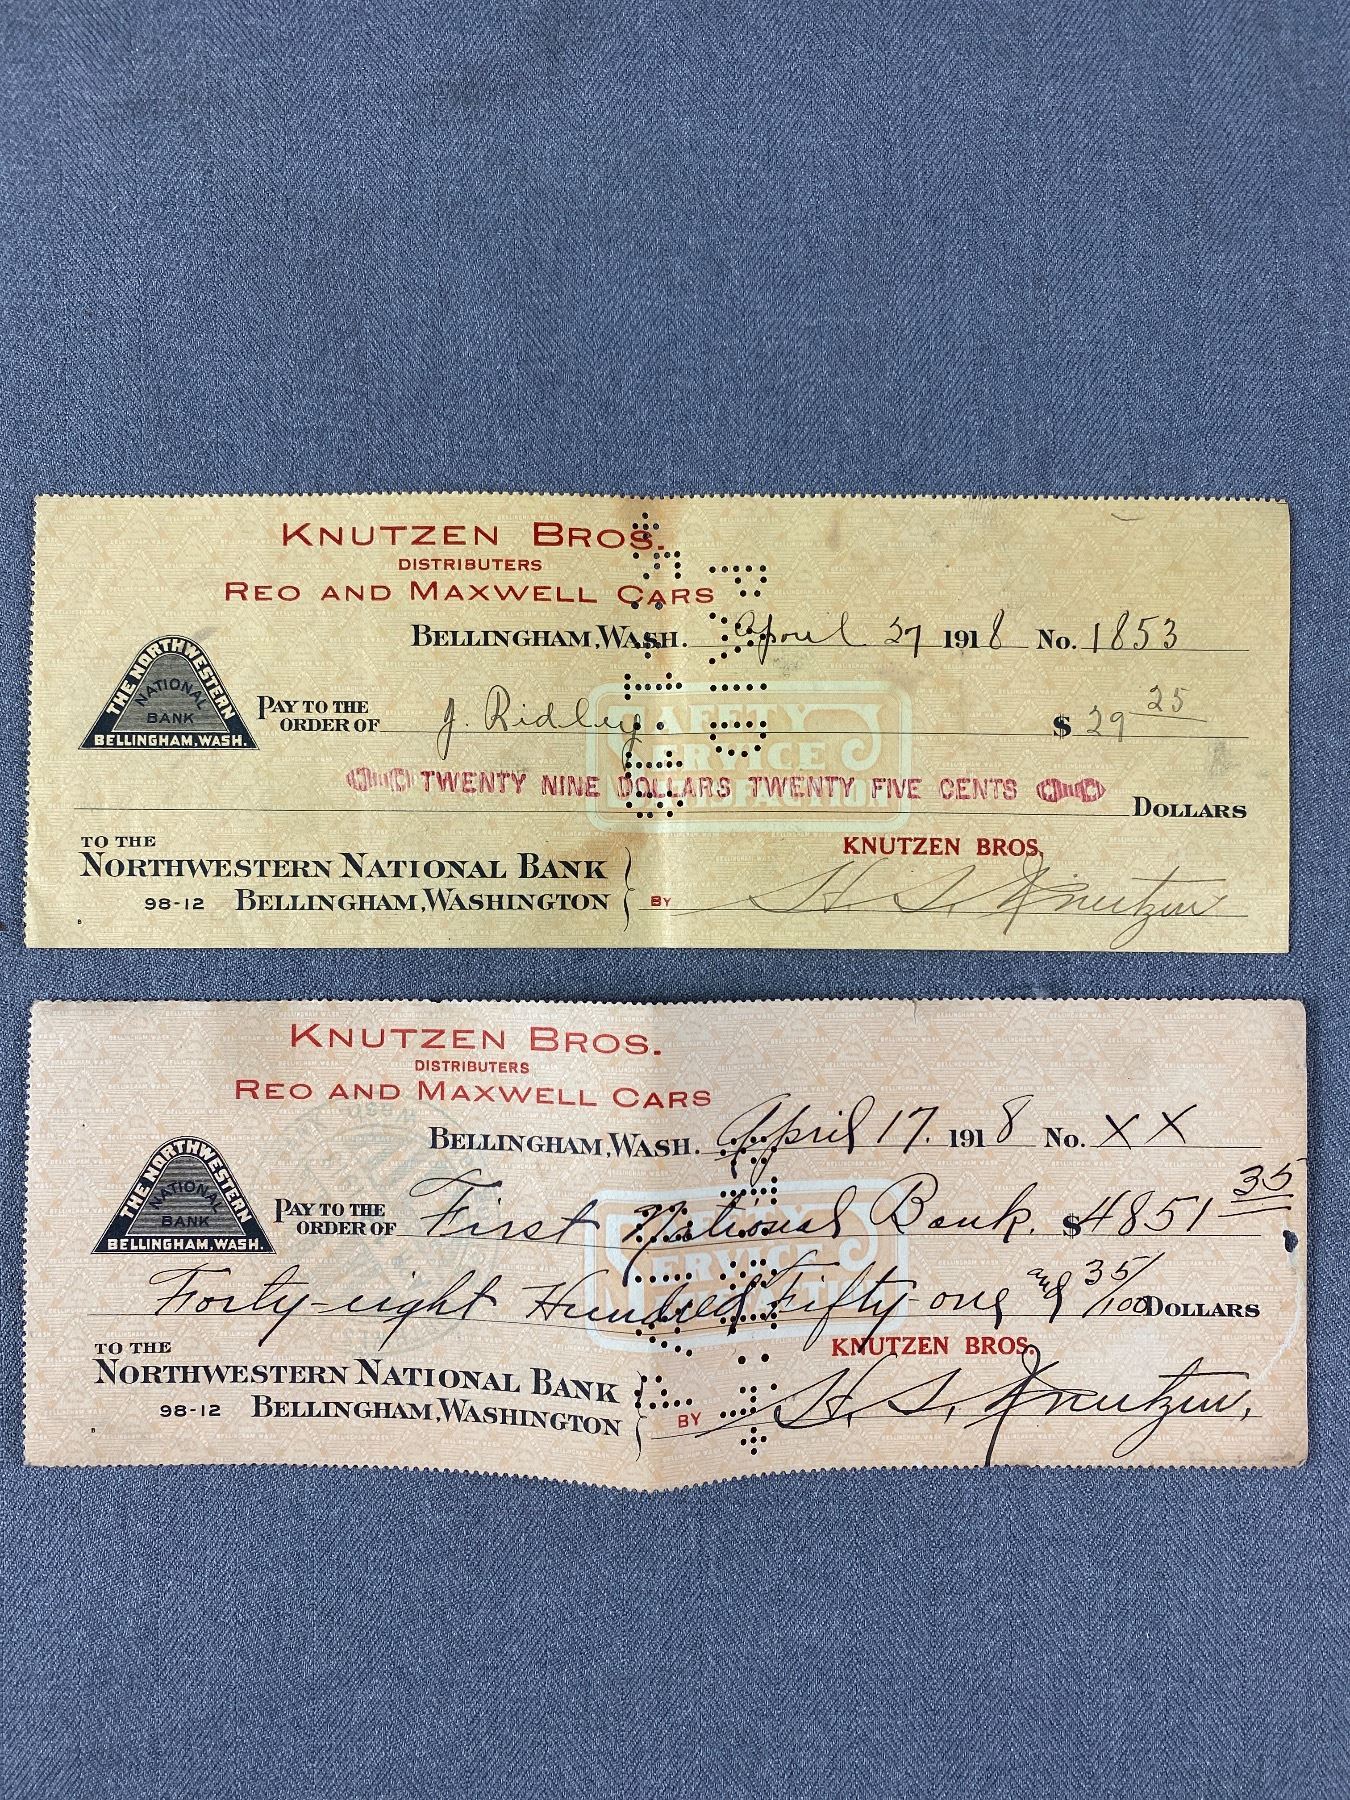 KNUTZEN BROS.
DISTRIBUTERS
REO AND MAXWELL CARS
BELLINGHAM, WASH. April 27 1918 No. 1853
THE NORTHWESTERN
NATIONAL
BANK
BELLINGHAM, WASH.
PAY TO THE
ORDER OF J. Ridley $ 29 25
SAFETY
SERVICE
SATISFACTION
TWENTY NINE DOLLARS TWENTY FIVE CENTS DOLLARS
TO THE
NORTHWESTERN NATIONAL BANK
98-12 BELLINGHAM, WASHINGTON
KNUTZEN BROS.
BY H. S. Knutzen
KNUTZEN BROS.
DISTRIBUTERS
REO AND MAXWELL CARS
BELLINGHAM, WASH. April 17. 1918 No. X X
THE NORTHWESTERN
NATIONAL
BANK
BELLINGHAM, WASH.
PAY TO THE
ORDER OF First National Bank. $4851 35
SERVICE
Forty-eight Hundred Fifty-one and 35/100 DOLLARS
TO THE
NORTHWESTERN NATIONAL BANK
98-12 BELLINGHAM, WASHINGTON
KNUTZEN BROS.
BY H. S. Knutzen.